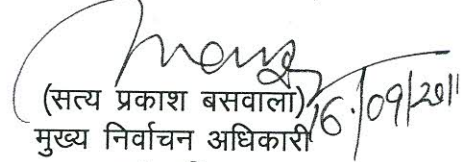 (सत्य प्रकाश बसवाला)
16/09/2011
मुख्य निर्वाचन अधिकारी